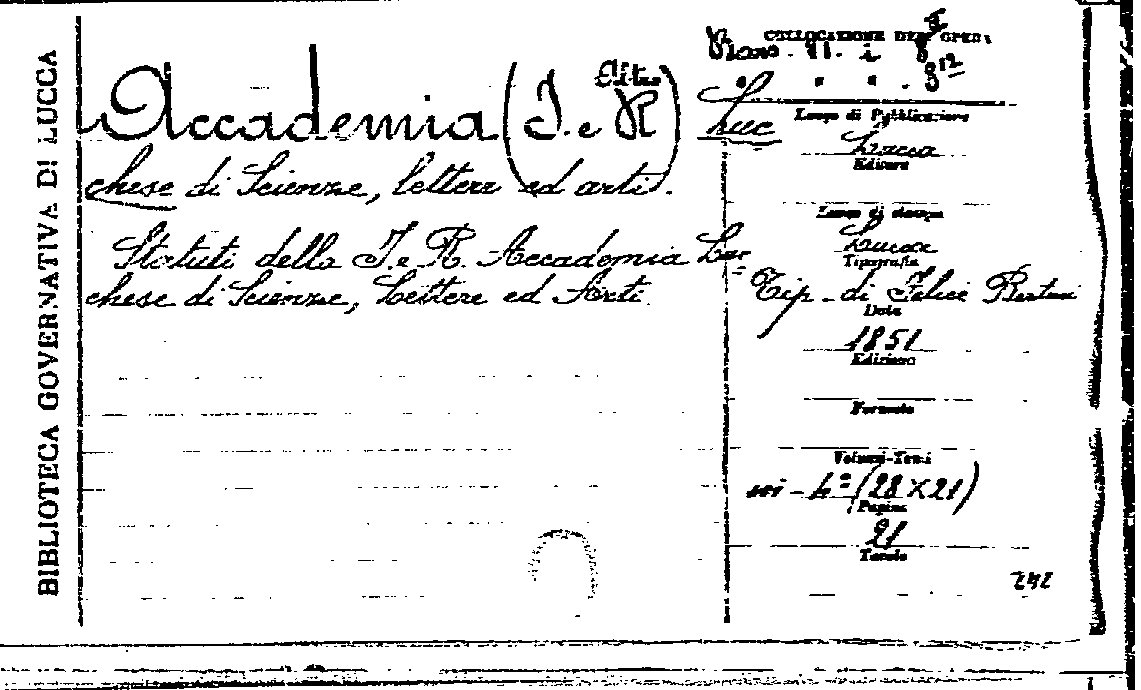 BIBLIOTECA GOVERNATIVA DI LUCCA
COLLOCAZIONE DELL'OPERA
Accademia (I. e R) Luc
chese di Scienze, lettere ed arti.
Statuti della I. e R. Accademia Luc
chese di Scienze, Lettere ed Arti.
Luogo di Pubblicazione
Lucca
Editore
Luogo di stampa
Lucca
Tipografia
Tip. di Felice Bertini
Data
1851
Edizione
Formato
Volumi-Tomi
4º (28 X 21)
Pagine
21
Tavole
242